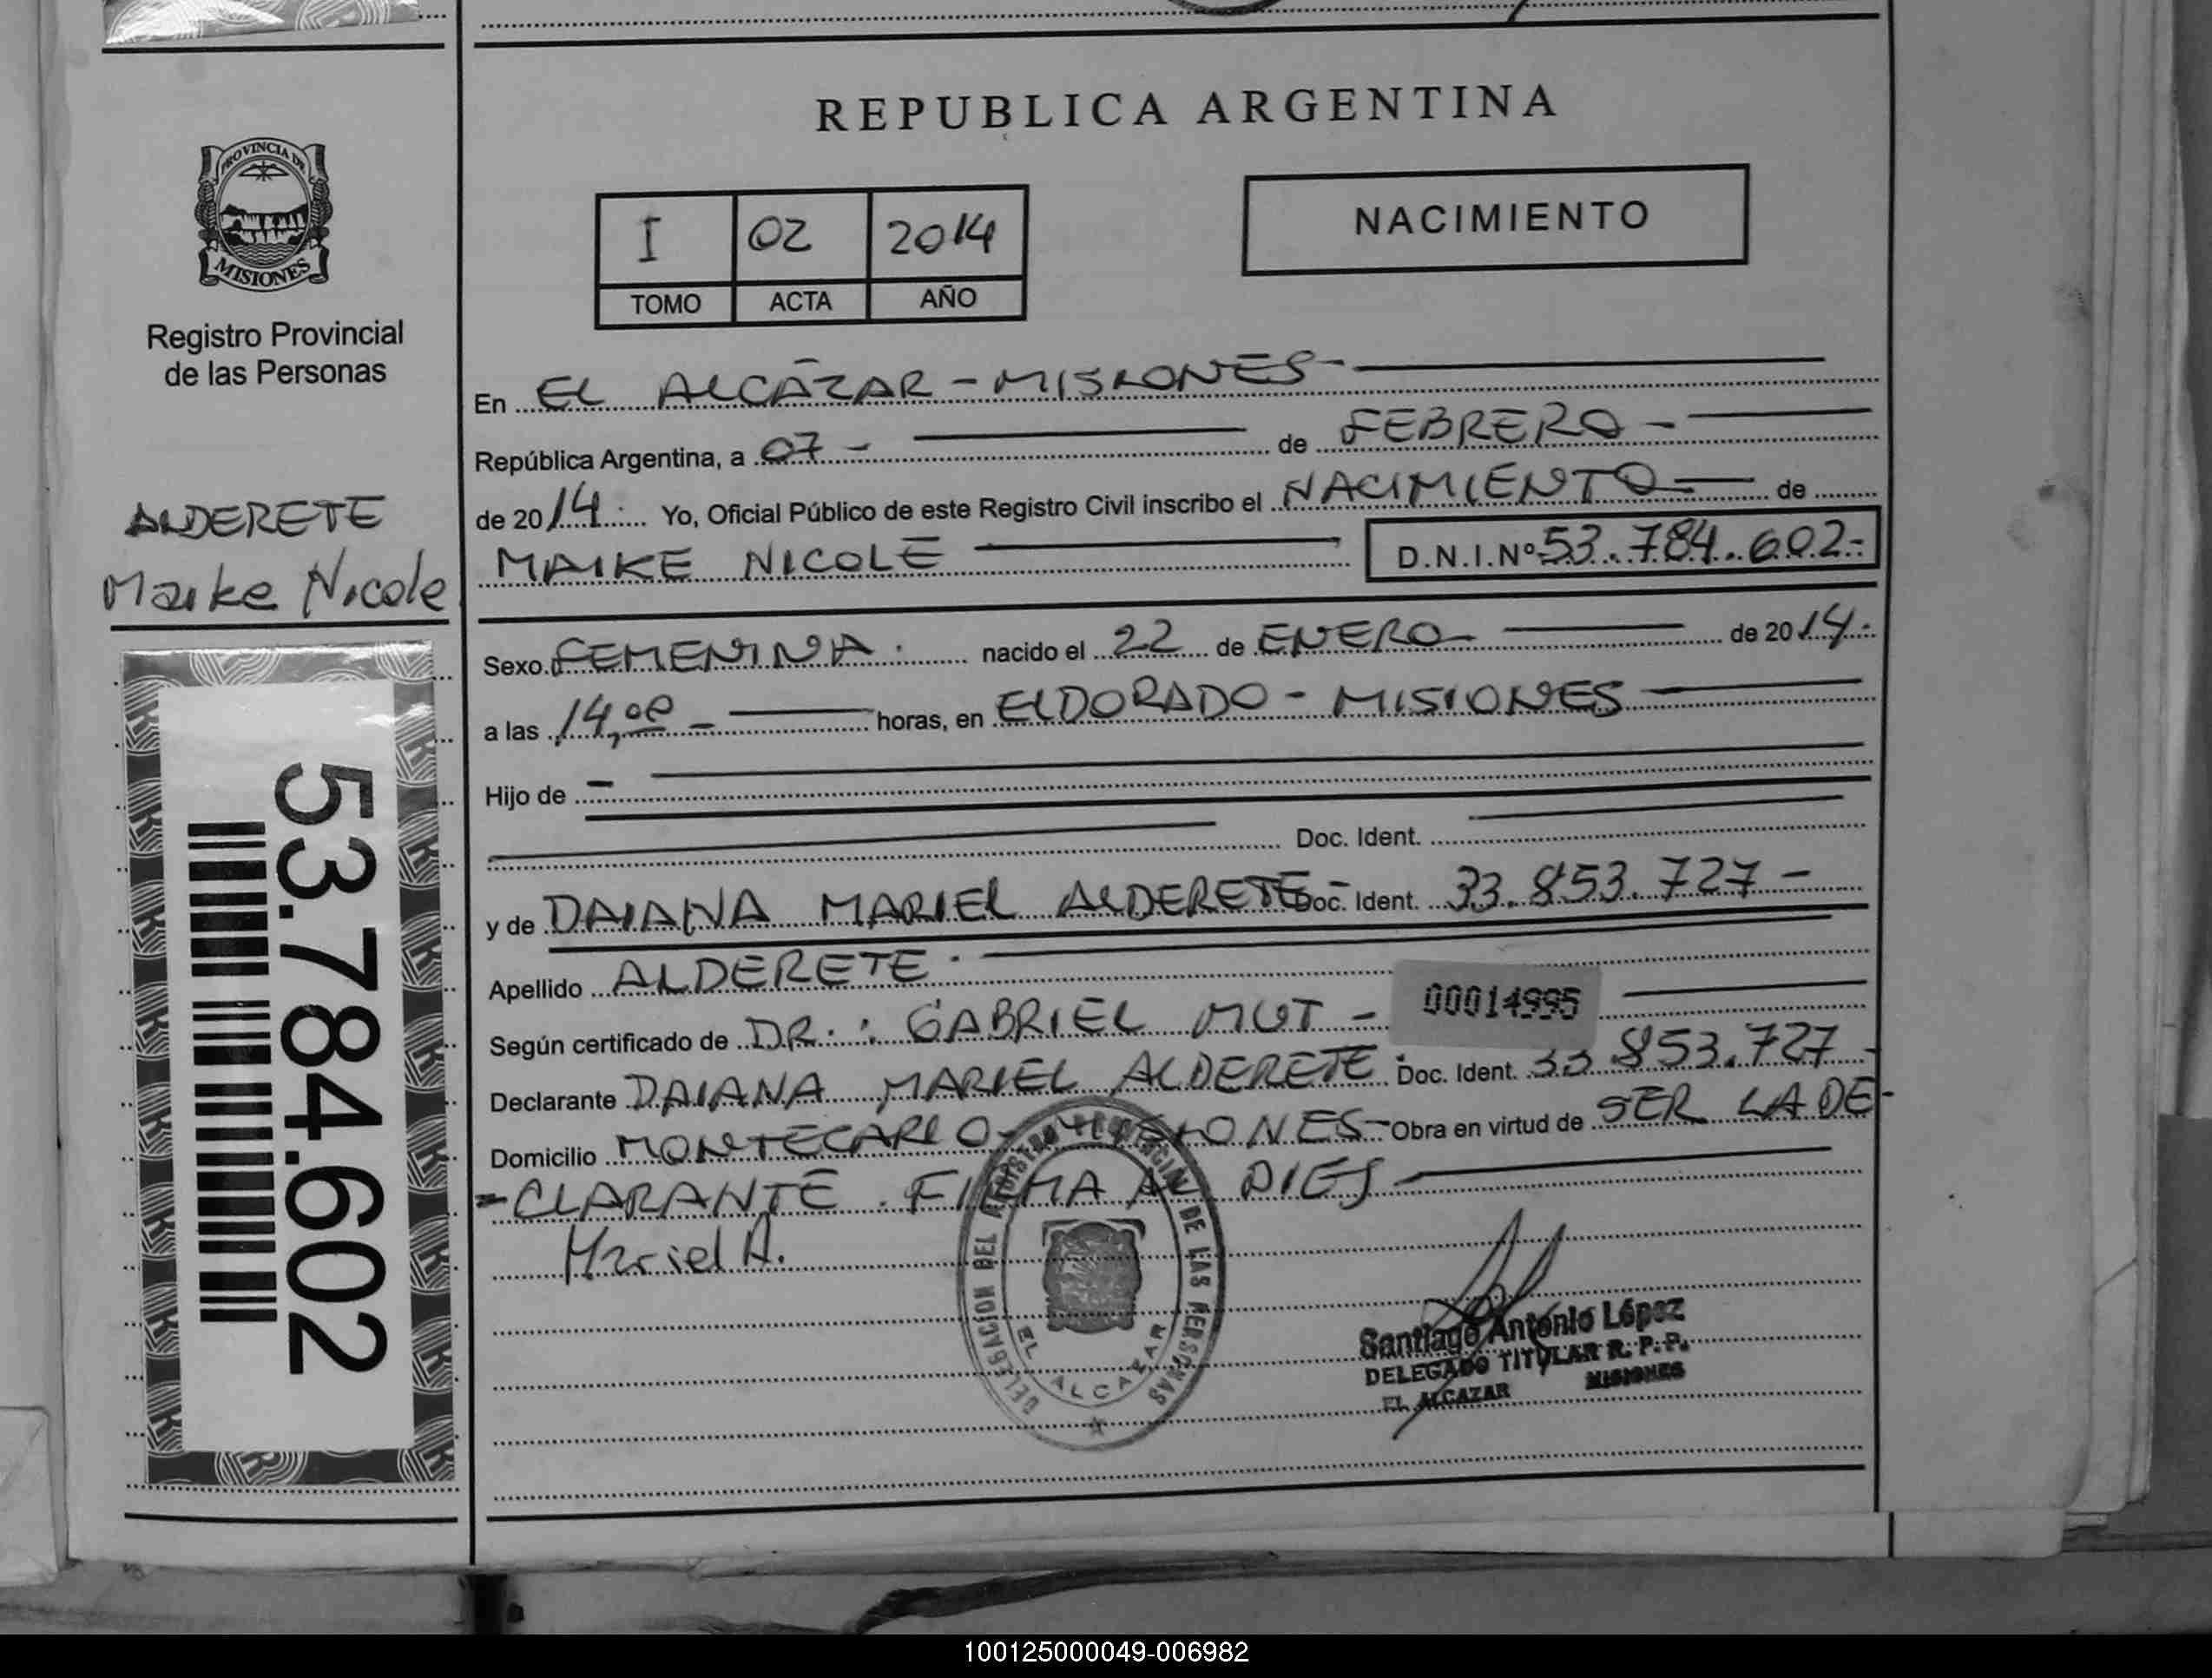 REPUBLICA ARGENTINA
PROVINCIA DE
MISIONES
Registro Provincial
de las Personas
I 02 2014
TOMO ACTA AÑO
NACIMIENTO
ALDERETE
Maike Nicole
53.784.602
En EL ALCÁZAR - MISIONES -
República Argentina, a 07 - de FEBRERO -
de 20 14. Yo, Oficial Público de este Registro Civil inscribo el NACIMIENTO - de
MAIKE NICOLE D.N.I.Nº 53.784.602-
Sexo FEMENINA. nacido el 22 de ENERO - de 20 14.-
a las 14,00 - horas, en ELDORADO - MISIONES
Hijo de -
Doc. Ident.
y de DAIANA MARIEL ALDERETE - Doc. Ident. 33.853.727 -
Apellido ALDERETE.
Según certificado de DR.: GABRIEL MUT - 00014995
Declarante DAIANA MARIEL ALDERETE. Doc. Ident. 33.853.727 -
Domicilio MONTECARLO - MISIONES - Obra en virtud de SER LA DE-
=CLARANTE. FIRMA AL PIES
Mariel A.
DELEGACIÓN DEL REGISTRO PROVINCIAL DE LAS PERSONAS
EL ALCAZAR
Santiago Antonio López
DELEGADO TITULAR R. P. P.
EL ALCAZAR MISIONES
100125000049-006982